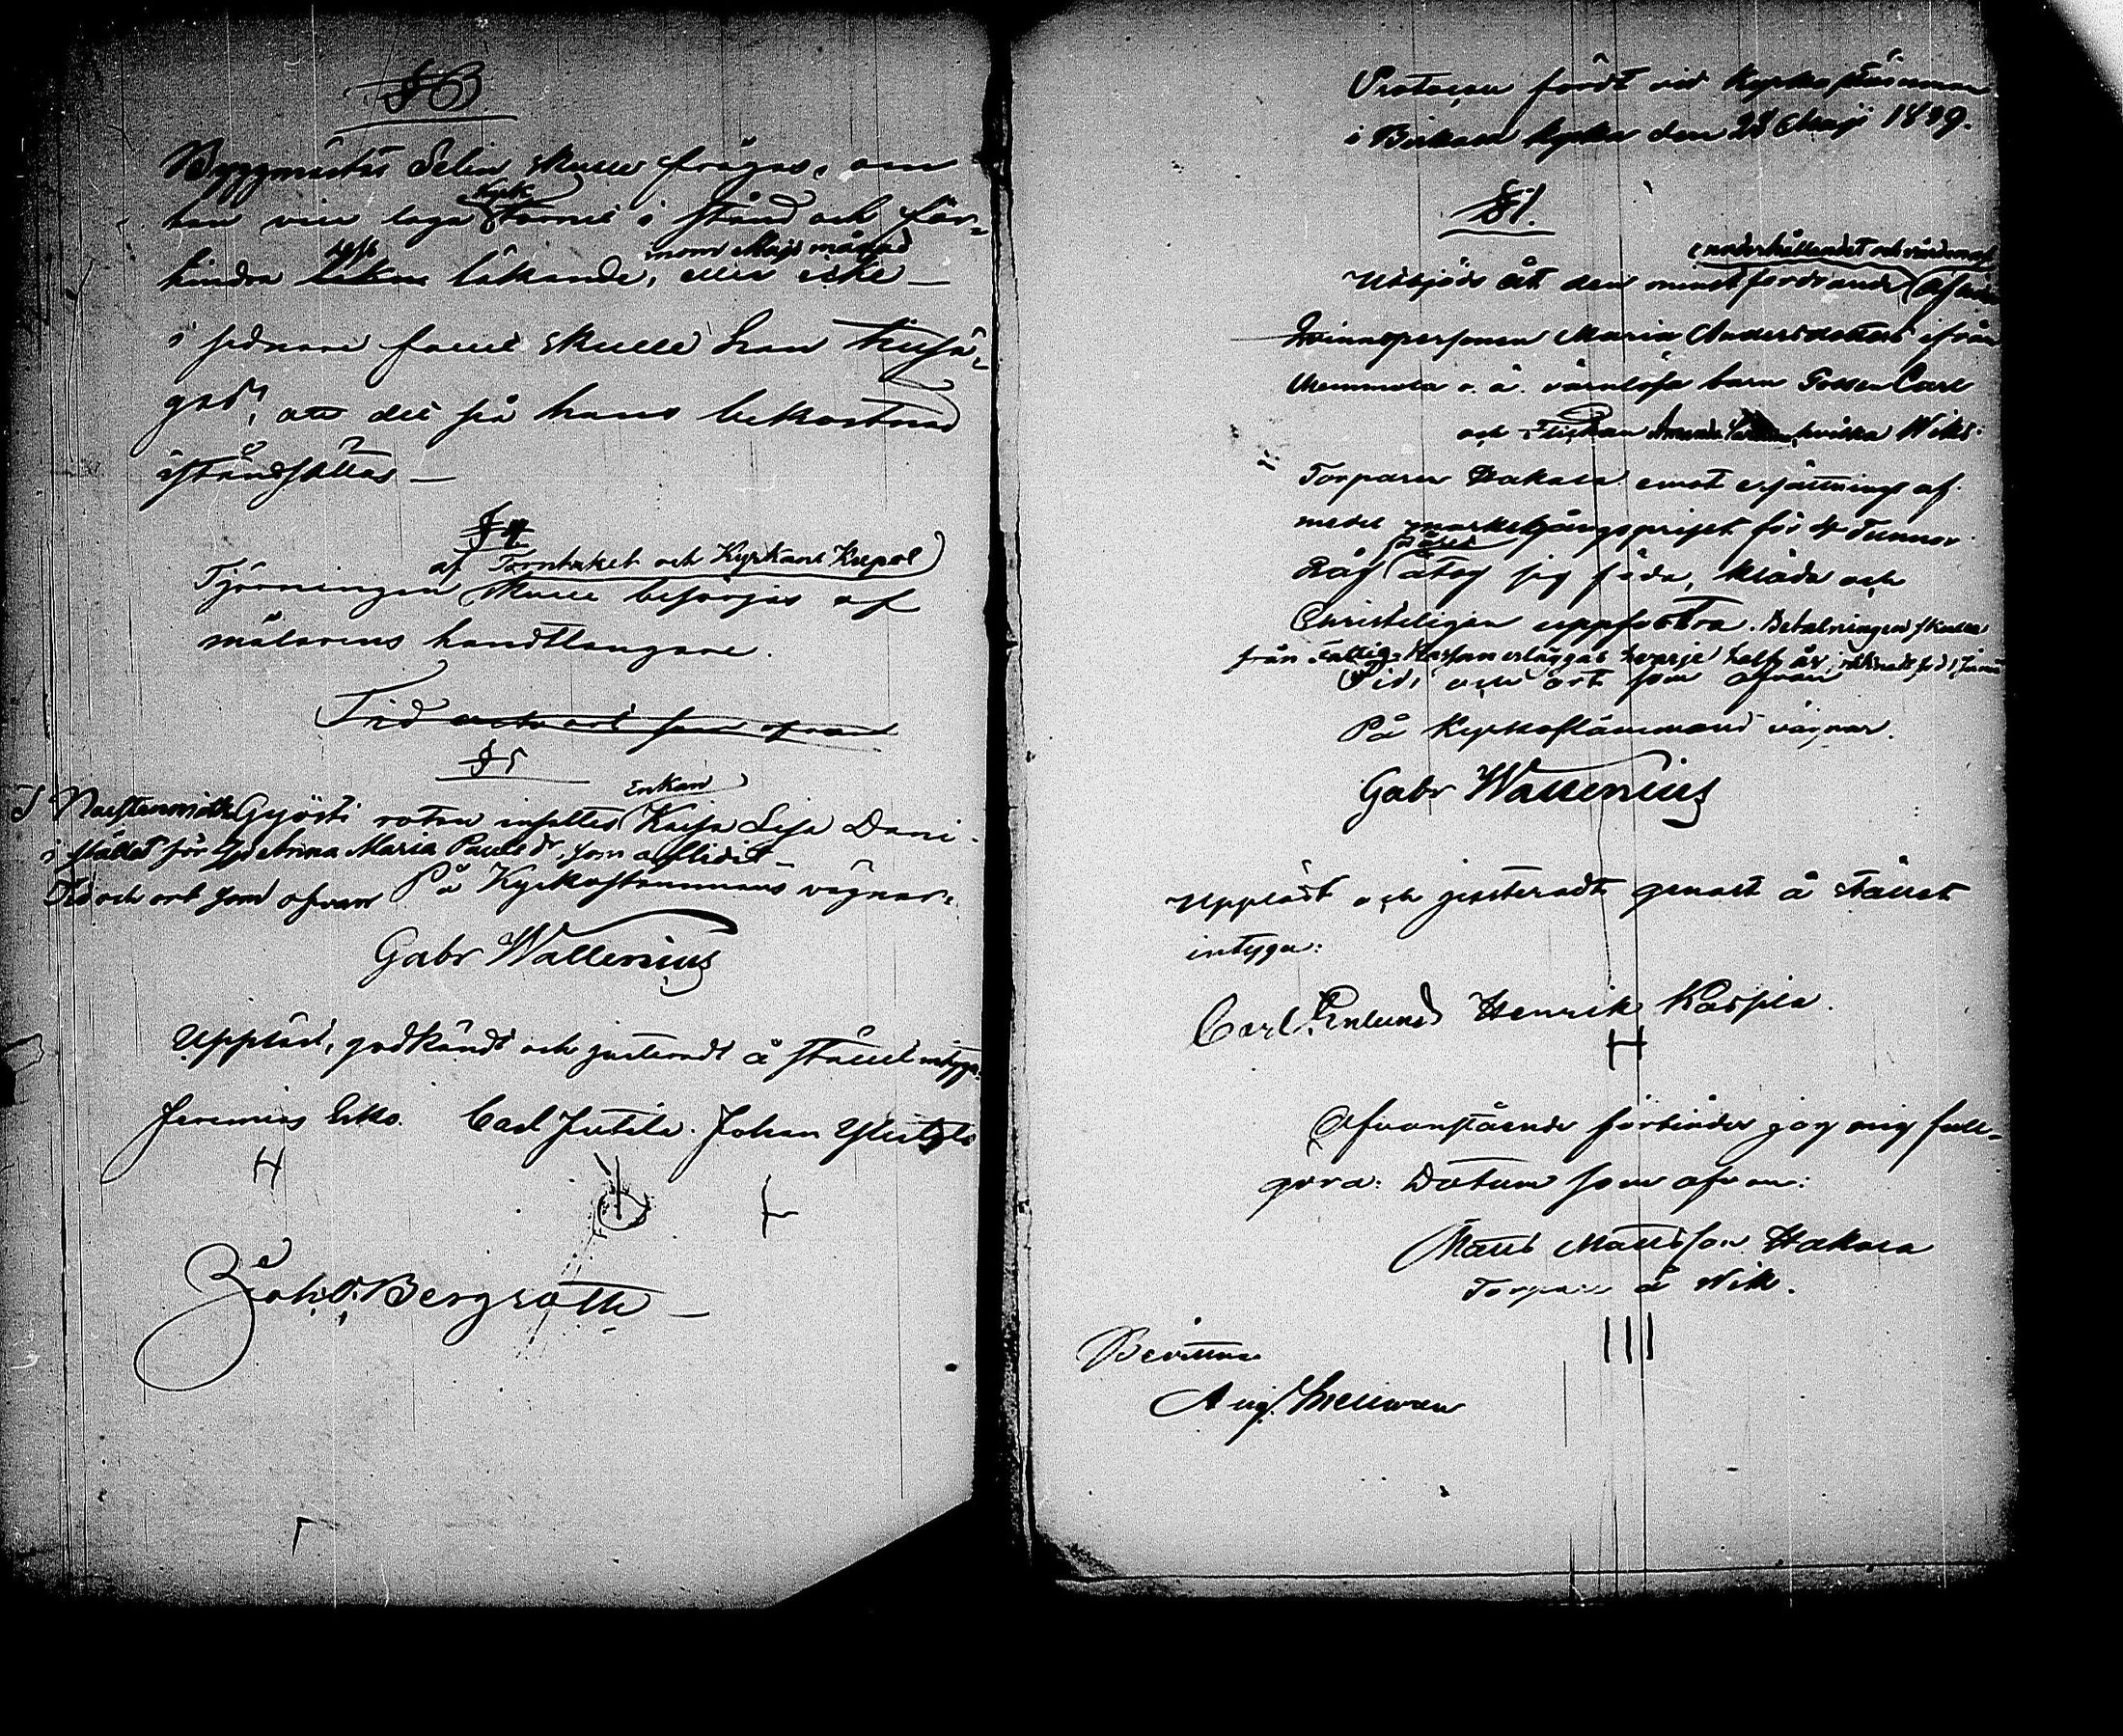 §3
Byggmäster Selin skulle frågas, om
han vill laga kyrk tornet i stånd och för-
hindra dess läkande, inom Maji månad eller icke —
i sednare fallet skulle han tillsä-
gas, att det på hans bekostnad
iståndsättes —
§4
Tjörningen af Torntaket och Kyrkans Kupol skulle besörjas af
målarens handtlangare.
Tid och ort som ofvan
§5
I Gyösti roten insattes Enkan Kajsa Lisa Dani-
i stället för Maria Paulsdr, som aflidit —
Tid och ort som ofvan På Kyrkostämmans vägnar.
Gabr Wallenius
Uppläst, godkändt och justeradt å stället intyga:
Jeremias Carl Jutila. Johan
H
Bergroth —
Protocoll fördt vid Kyrkostämman
i kyrka den 28 Maji 1839.
§1.
Utbjöds åt den minstfordrande underhållandet och vården af
Qvinnspersonen Maria Andersdotters ifrån
o. ä. värnlösa barn Gossen Carl
och Flickan hvilka Wiks
Torparen Hakala emot ersättning af
medel markegångspriset för 4 Tunnor
Råg åtog sig föda, kläda och
Christeligen uppfostra. Betalningen skulle
från fattig Kassan erläggas hvarje halft år,
Tid och ort som ofvan
På Kyrkostämmans vägnar.
Gabr Wallenius
Uppläst och justeradt genast å stället
intyga:
Carl Henrik Kaspila.
H
Ofvanstående förbinder jag mig full-
göra: Datum som ofvan:
Matts Mattsson Hakala
Torpare å Wik.
III
Bevittnar
Aug.